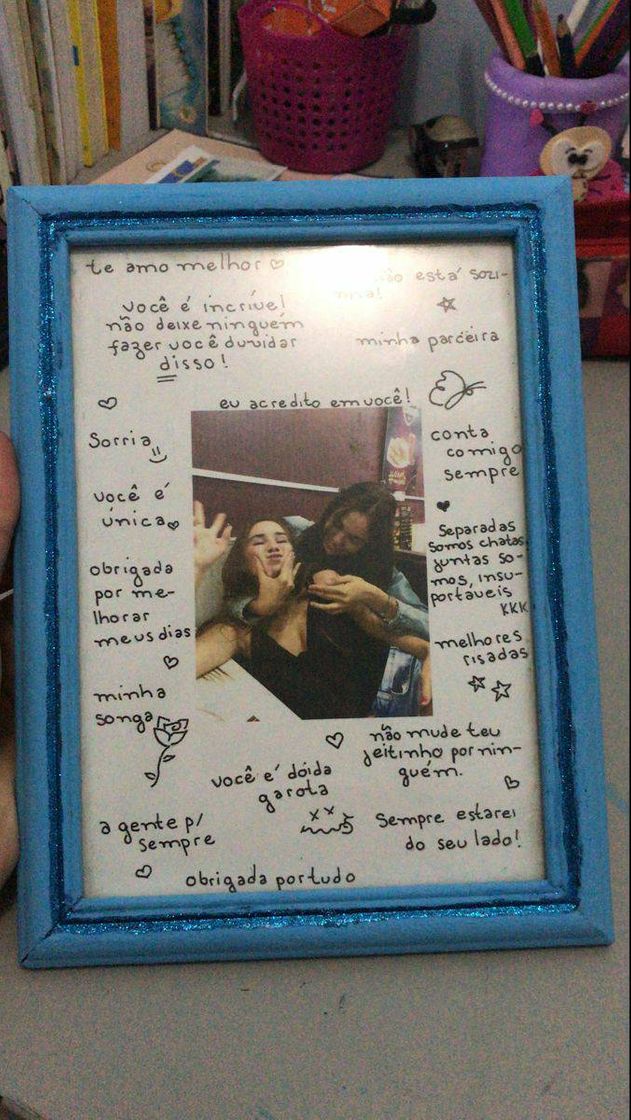 te amo melhor
está sozi-
você é incrível
não deixe ninguém
fazer você duvidar
disso!
minha parceira
eu acredito em você!
Sorria
conta
comigo
sempre
você é
única
Separadas
somos chatas,
juntas so-
mos, insu-
portáveis
KKK
obrigada
por me-
lhorar
meus dias
melhores
risadas
minha
songa
não mude teu
jeitinho por nin-
guém.
você é dóida
garota
a gente p/
sempre
Sempre estarei
do seu lado!
obrigada por tudo